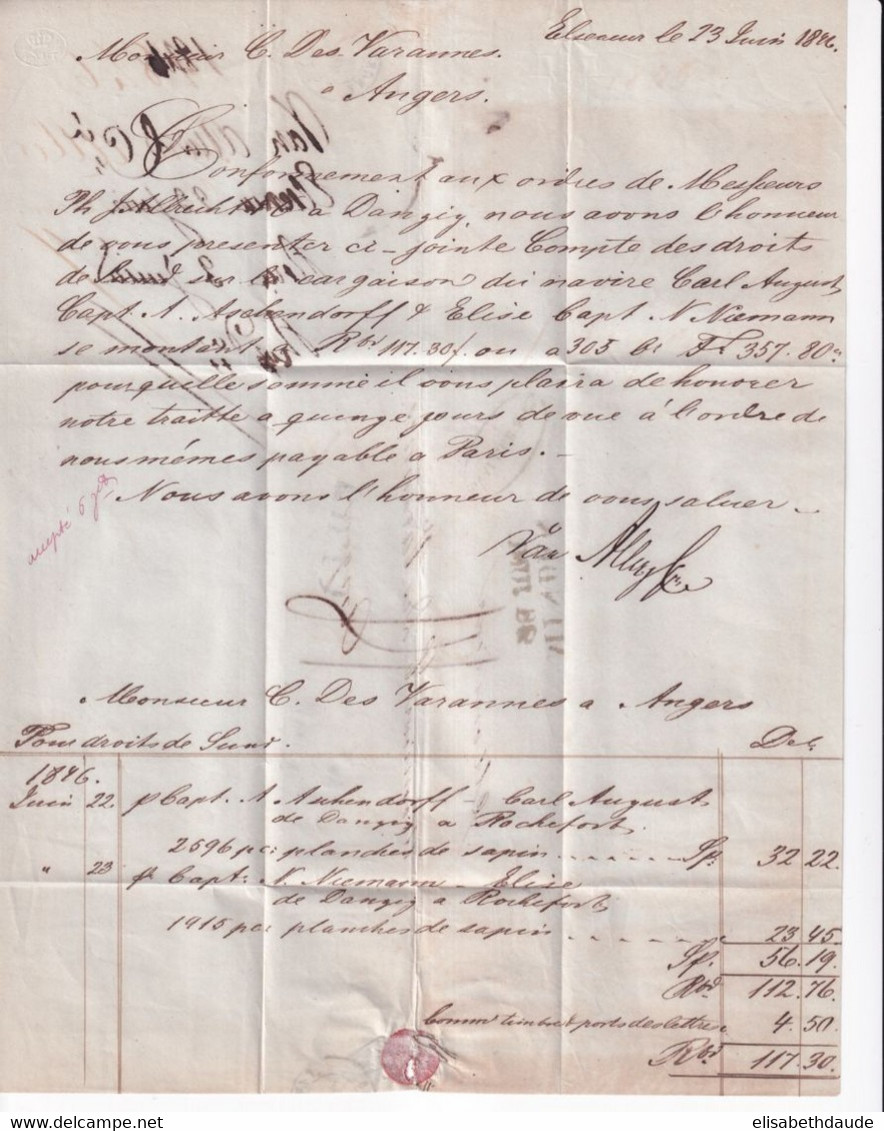 Elseneur le 23 Juin 1846.
Monsieur C. Des Varannes.
a Angers.
Conformement aux ordres de Messieurs
Ph J. Albrecht & Cº a Danzig, nous avons l'honneur
de vous presenter ci-jointe Compte des droits
de Sund sur la cargaison du navire Carl August
Capt. A. Aschendorff & Elise Capt N. Niemann
se montant a Rbd 117.30/. ou a 305 Fs 357.80
pourquelle somme il vous plaira de honorer
notre traitte a quinze jours de vue à l'ordre de
nous mêmes payable a Paris.-
Nous avons l'honneur de vous saluer
accepté 6
Van
Monsieur C. Des Varannes a Angers
Pour droits de Sund. Deb.
1846.
Juin 22. p Capt. A Aschendorff - Carl August
de Danzig a Rochefort
2596 pcs planches de sapin Sp. 32 22.
" 23 p Capt. N. Niemann - Elise
de Danzig a Rochefort
1915 pcs planches de sapin 23 45.
Sp. 56.19.
Rbd. 112.76.
Comm timbre & ports de lettres 4.50.
Rbd 117.30.
elisabethdaude